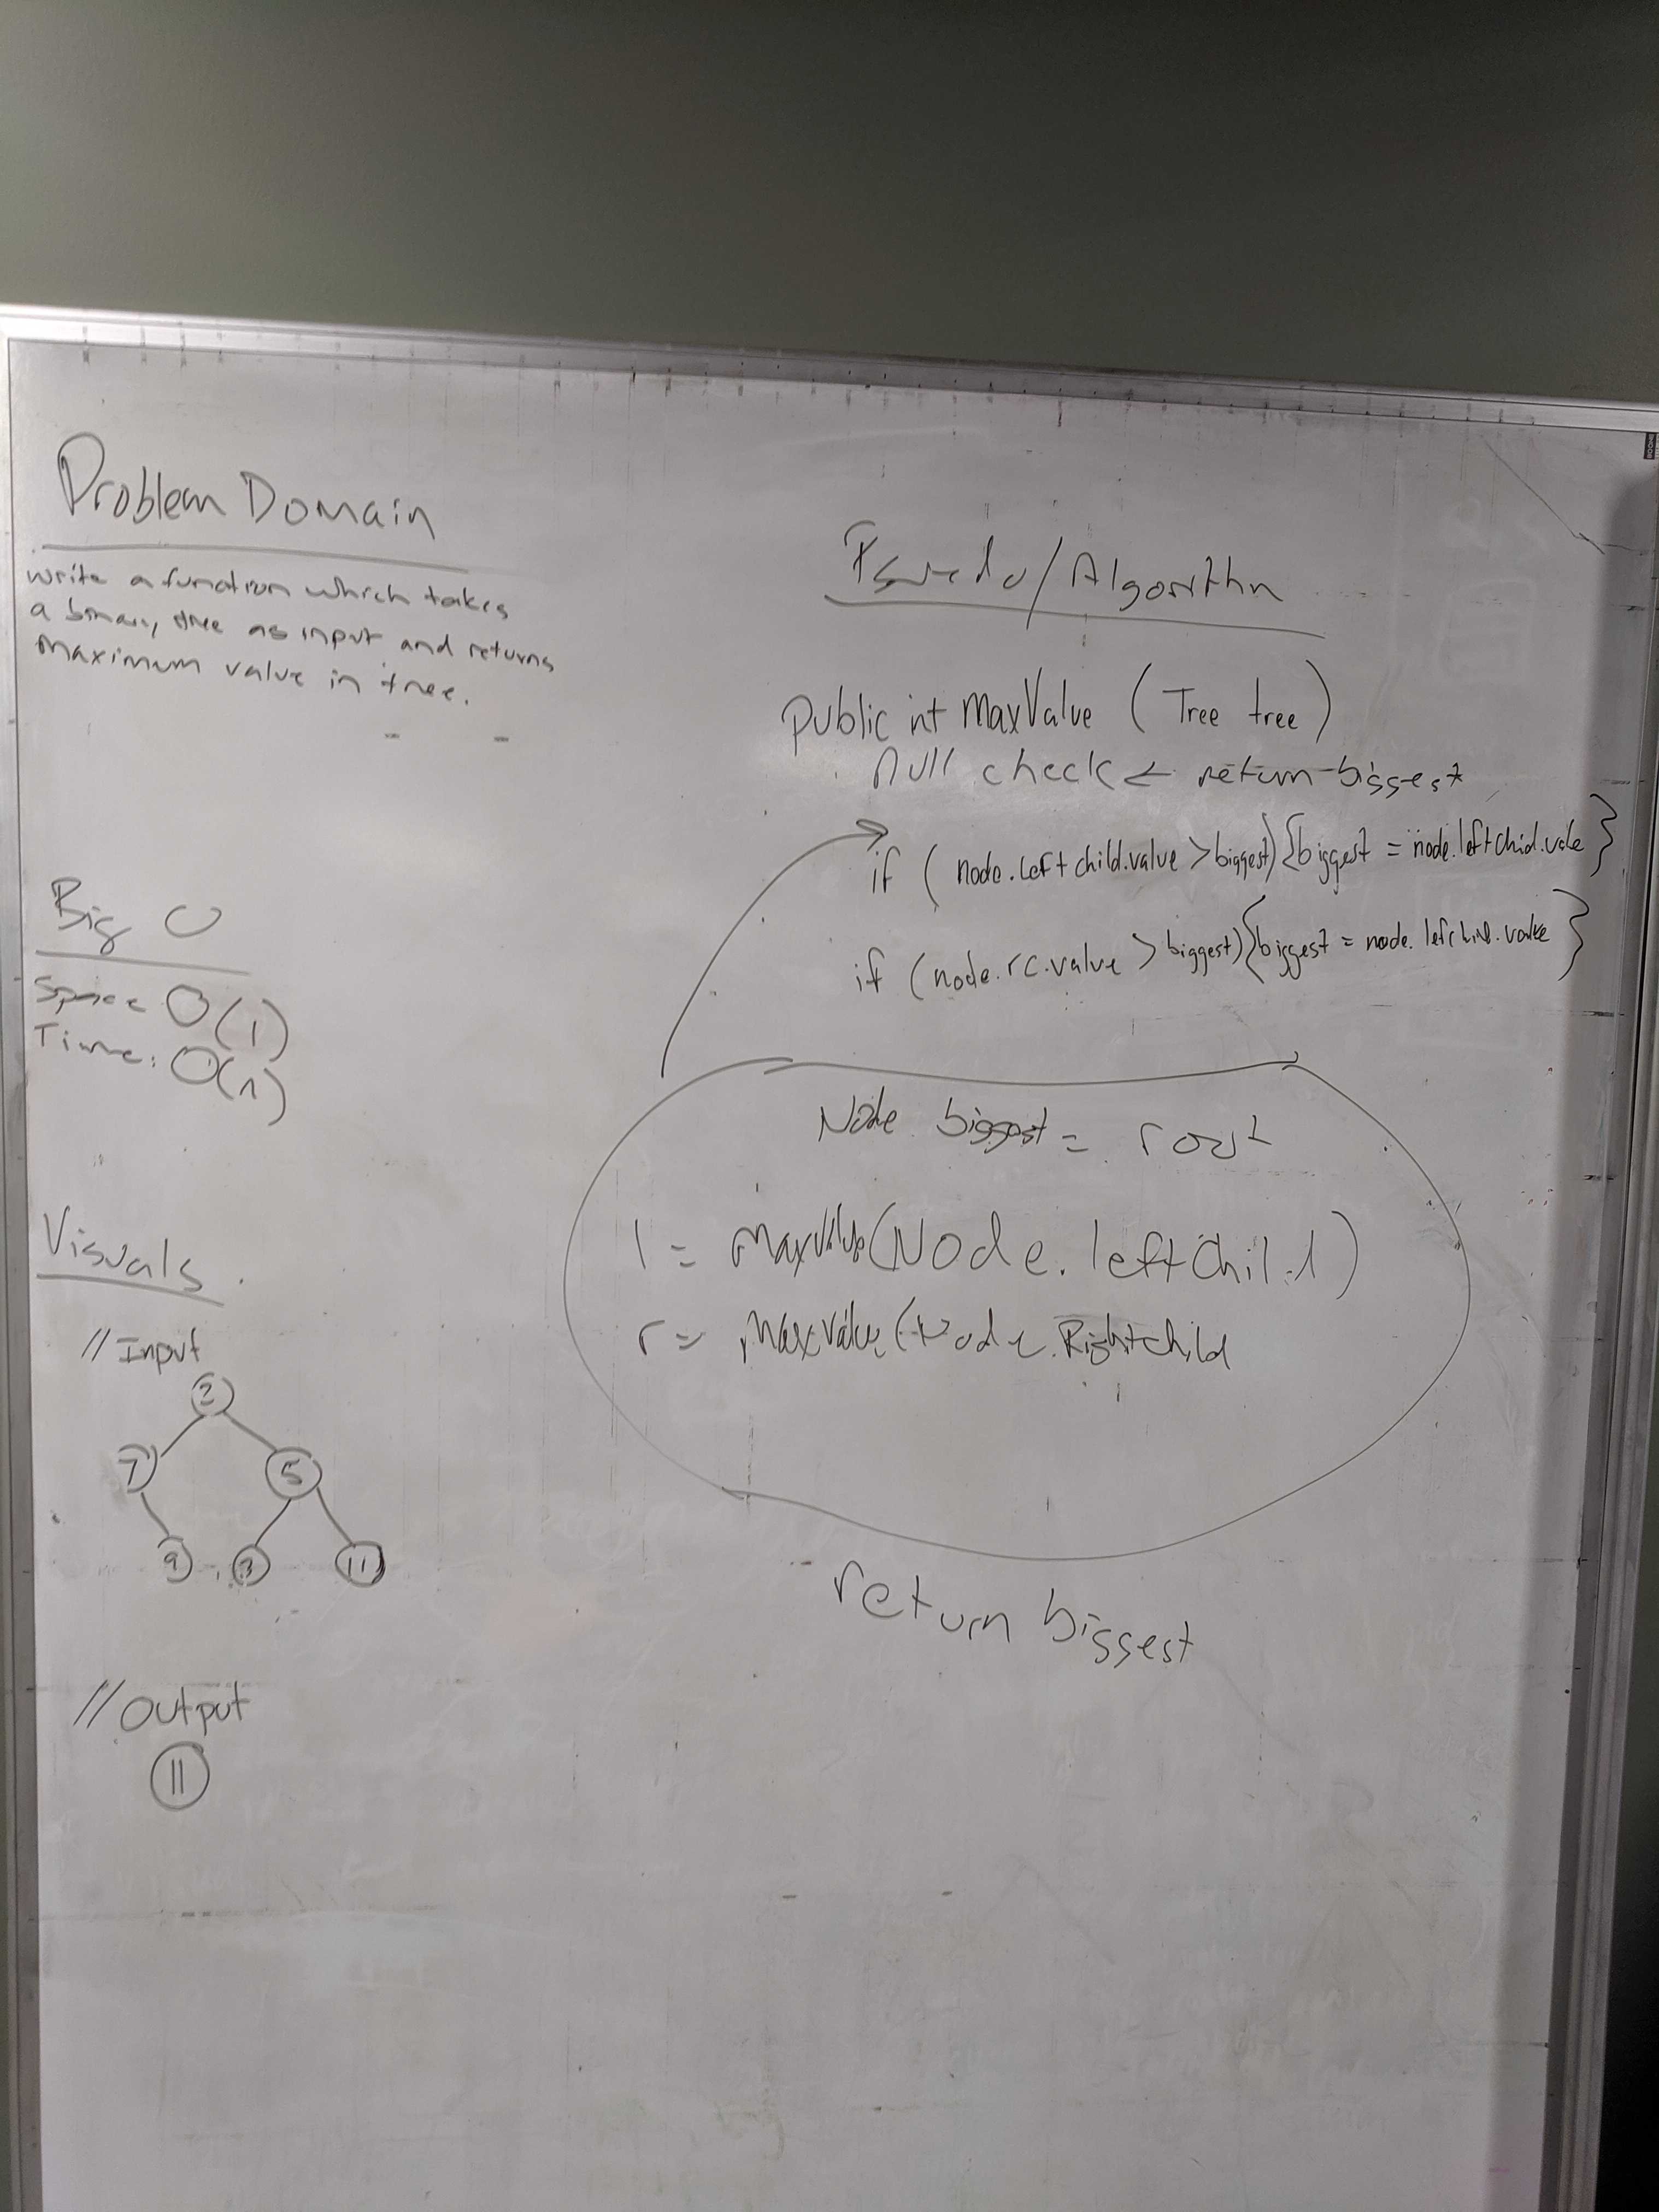 Problem Domain
write a function which takes
a binary tree as input and returns
maximum value in tree.
Big O
Space O(1)
Time: O(n)
Visuals
// Input
2
7 5
9 3 11
// Output
11
Psuedo/Algorithn
public int maxValue (Tree tree)
Null check ← return biggest
if (node.left child.value > biggest) {biggest = node.leftChid.vale }
if (node.rc.value > biggest) {biggest = node.lefchild.value }
Node biggest = root
l = maxValue(Node.leftChild)
r = maxValue(Node.RightChild
return biggest